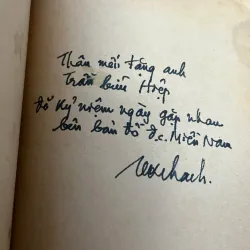 Thân mến tặng anh
Trần bửu Hiệp
Để kỷ niệm ngày gặp nhau
bên bản đồ đ.c. Miền Nam